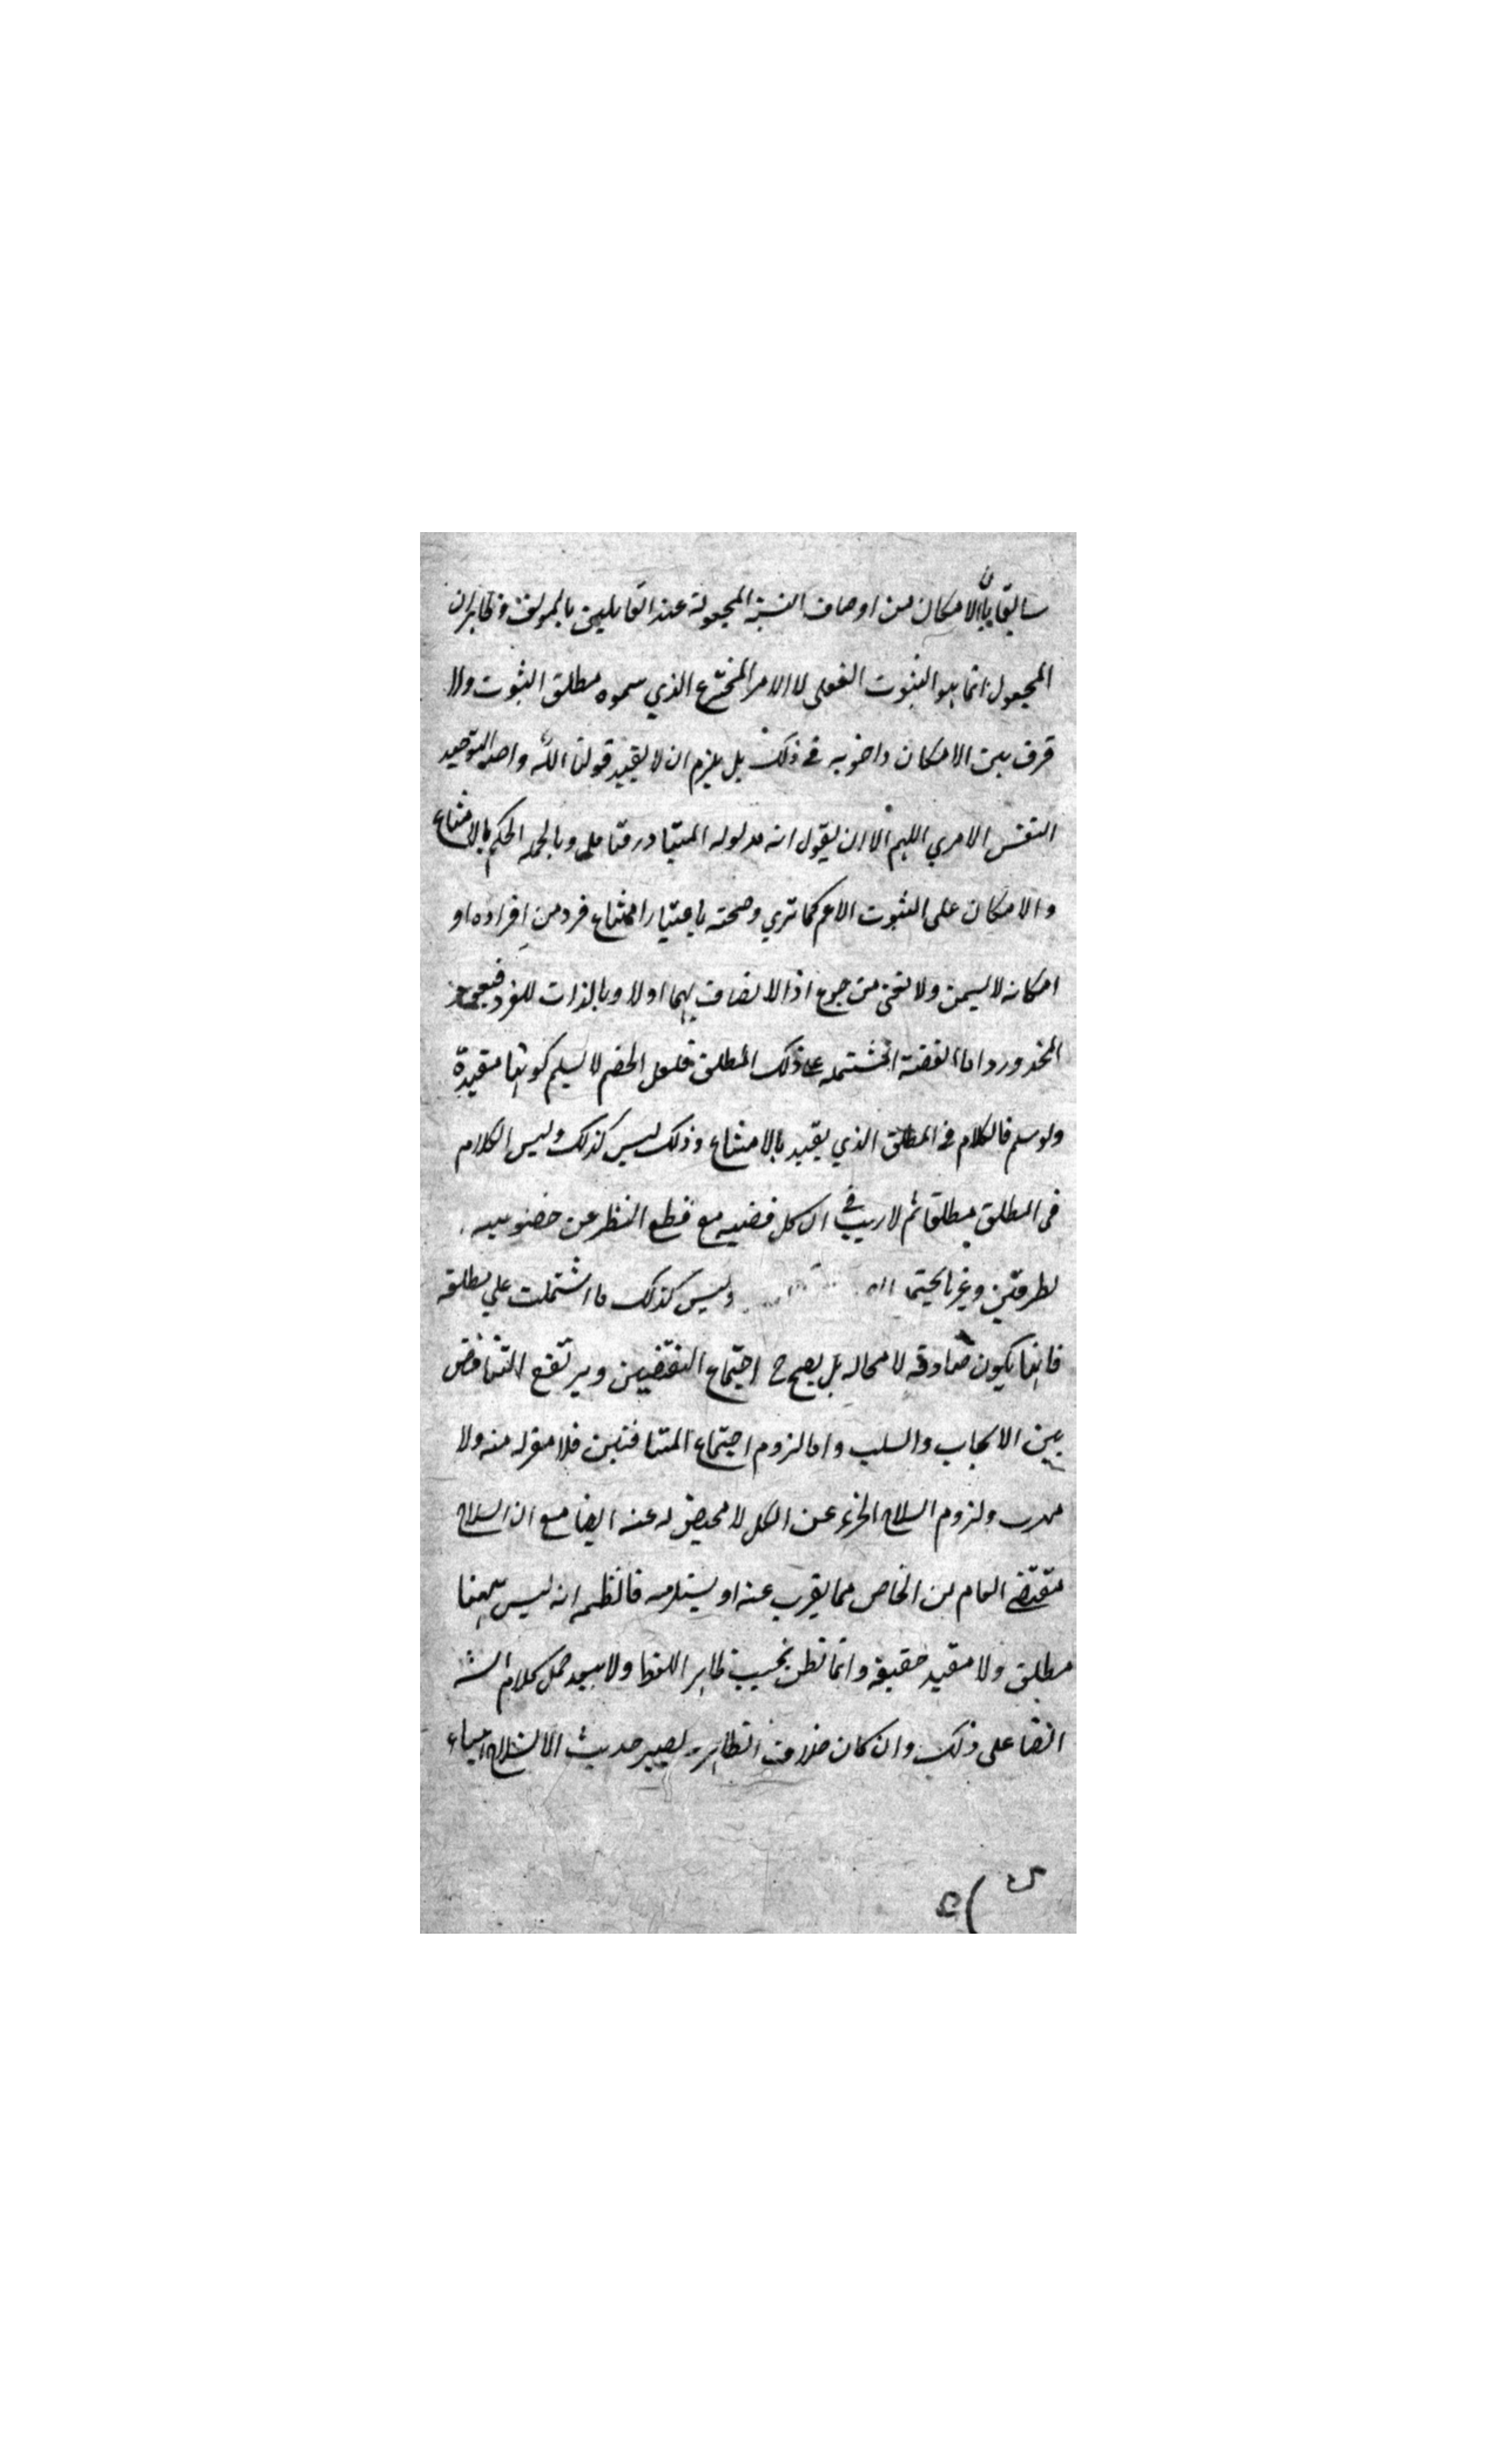 سابقا بان الامكان من اوصاف النسبة المجعولة عند القايلين بالمولف وظاهر ان
المجعول انما هو الثبوت الفعلي لا الامر المخترع الذي سموه مطلق الثبوت ولا
فرق بين الامكان واخويه في ذلك بل يلزم ان لا يقيد قولنا الله واحد التوحيد
النفس الامري اللهم الا ان يقول انه مدلوله المتبادر فتامل وبالجمله الحكم بالامتناع
والامكان على الثبوت الاعم كما تري وصحته باعتبار امتناع فرد من افراده او
امكانه لا يسمن ولا يغني من جوع اذ الاتصاف بهما اولا وبالذات للفرد فيعود
المحذور واما القضية المشتمله على ذلك المطلق فلعل الخصم لا يسلم كونها مقيدة
ولو سلم فالكلام في المطلق الذي يقيد بالامتناع وذلك ليس كذلك وليس الكلام
في المطلق مطلقا ثم لا ريب في ان كل قضيه مع قطع النظر عن خصوصيه
لطرفين وغيرها يحتمل وليس كذلك ما اشتملت علي مطلقه
فانها يكون صادقه لا محاله بل يصح ح اجتماع النقيضين ويرتفع التناقض
بين الايجاب والسلب واما لزوم اجتماع المتنافيين فلا مفر له منه ولا
مهرب ولزوم انسلاخ الجزء عن الكل لا محيص له عنه ايضا مع ان انسلاخ
مقتضي العام من الخاص مما يقرب عنه او يستلزمه فالظم انه ليس ههنا
مطلق ولا مقيد حقيقة وانما تظن بحسب ظاهر اللفظ ولا يبعد حمل كلام الش
ايضا على ذلك وان كان خلاف الظاهر ليصير حديث الانسلاخ